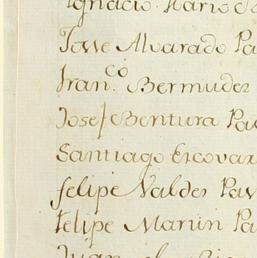 Ignacio Mario
Jose Alvarado Pa
Fran.co Bermudes
Josef Bentura Pa
Santiago Escovar
felipe Valdes Pa
felipe Martin Pa
Juan